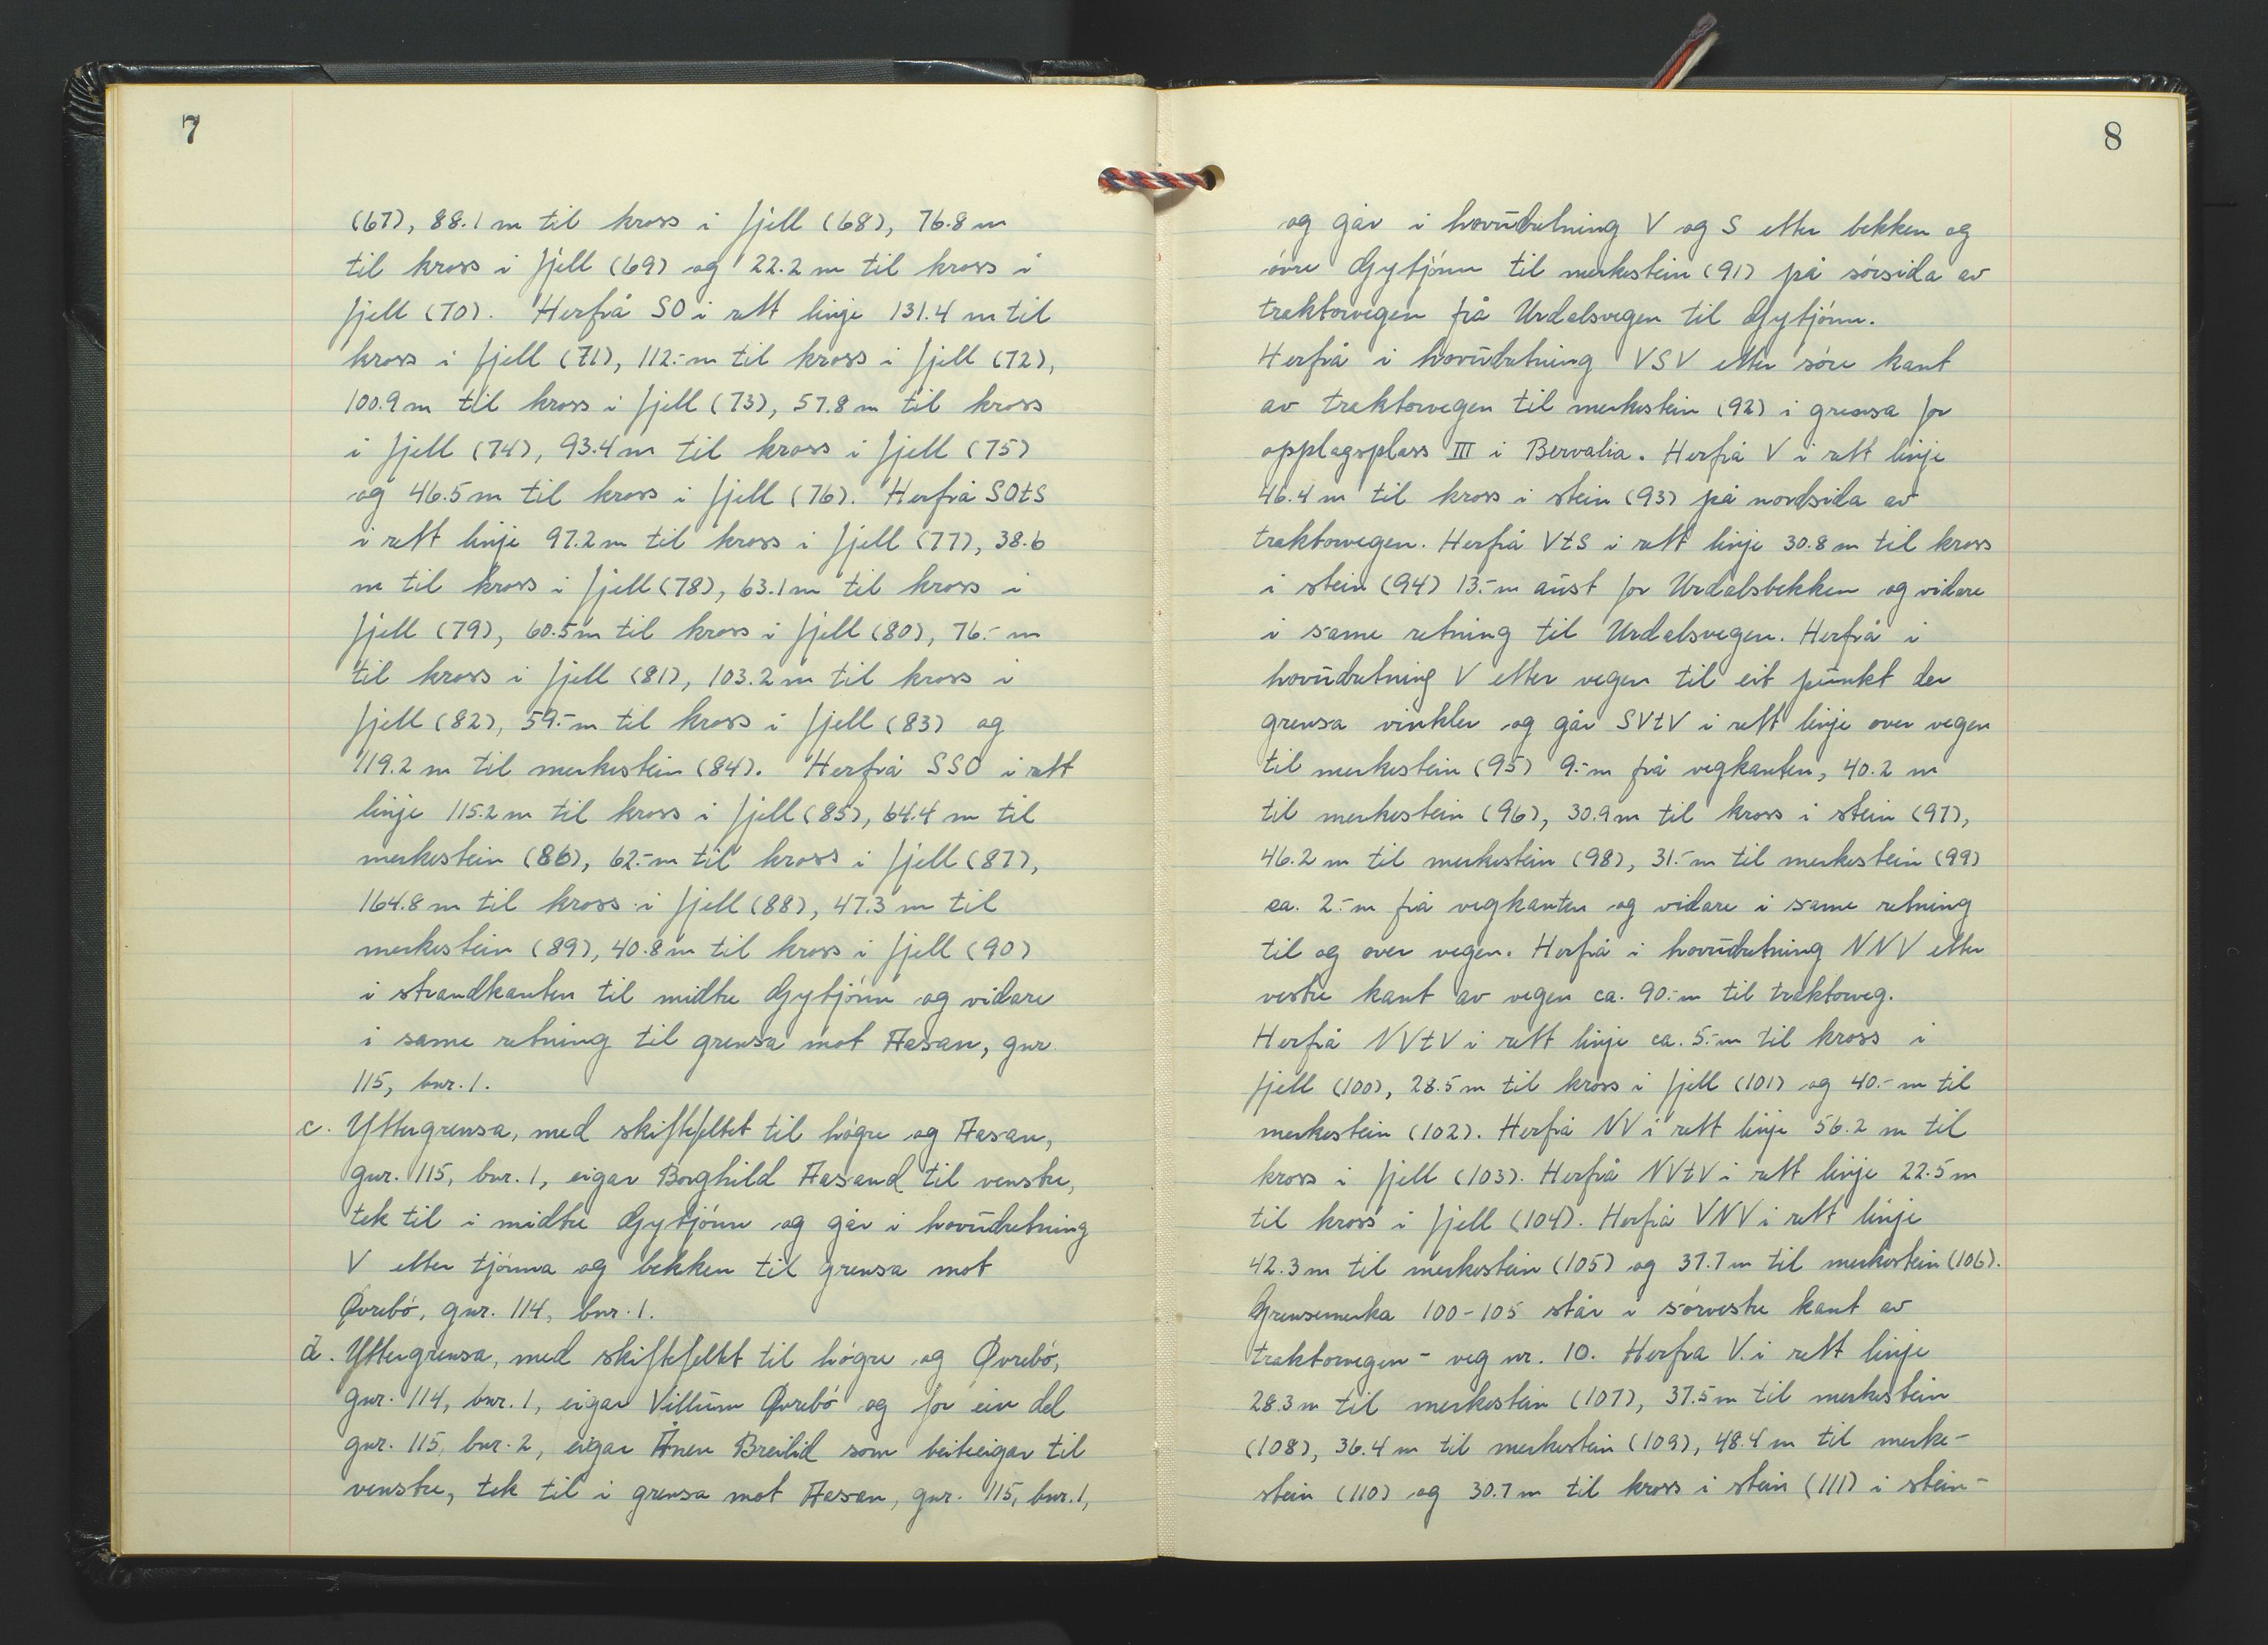 7
(67), 88.1 m til kross i fjell (68), 76.8 m
til kross i fjell (69) og 22.2 m til kross i
fjell (70). Herfrå SO i rett linje 131.4 m til
kross i fjell (71), 112.- m til kross i fjell (72),
100.9 m til kross i fjell (73), 57.8 m til kross
i fjell (74), 93.4 m til kross i fjell (75)
og 46.5 m til kross i fjell (76). Herfrå SOtS
i rett linje 97.2 m til kross i fjell (77), 38.6
m til kross i fjell (78), 63.1 m til kross i
fjell (79), 60.5 m til kross i fjell (80), 76.- m
til kross i fjell (81), 103.2 m til kross i
fjell (82), 59.- m til kross i fjell (83) og
119.2 m til merkestein (84). Herfrå SSO i rett
linje 115.2 m til kross i fjell (85), 64.4 m til
merkestein (86), 62.- m til kross i fjell (87),
164.8 m til kross i fjell (88), 47.3 m til
merkestein (89), 40.8 m til kross i fjell (90)
i strandkanten til midtre Gytjónn og vidare
i same retning til grensa mot Aasan, gnr.
115, bnr. 1.
c. Yttergrensa, med skiftefeltet til høgre og Aasan,
gnr. 115, bnr. 1, eigar Borghild Aasand til venstre,
tek til i midtre Gytjónn og går i hovudretning
V etter tjónna og bekken til grensa mot
Øvrebó, gnr. 114, bnr. 1.
d. Yttergrensa, med skiftefeltet til høgre og Øvrebó,
gnr. 114, bnr. 1, eigar Villum Øvrebó og for ein del
gnr. 115, bnr. 2, eigar Ånen Breilid som beiteeigar til
venstre, tek til i grensa mot Aasan, gnr. 115, bnr. 1,
8
og går i hovudretning V og S etter bekken og
óvre Gytjónn til merkestein (91) på sórsida av
traktorvegen frå Urdalsvegen til Gytjónn.
Herfrå i hovudretning VSV etter sóre kant
av traktorvegen til merkestein (92) i grensa for
opplagsplass III i Bervalia. Herfrå V i rett linje
46.4 m til kross i stein (93) på nordsida av
traktorvegen. Herfrå VtS i rett linje 30.8 m til kross
i stein (94) 13.- m aust for Urdalsbekken og vidare
i same retning til Urdalsvegen. Herfrå i
hovudretning V etter vegen til eit punkt der
grensa vinkler og går SVtV i rett linje over vegen
til merkestein (95) 9.- m frå vegkanten, 40.2 m
til merkestein (96), 30.9 m til kross i stein (97),
46.2 m til merkestein (98), 31.- m til merkestein (99)
ca. 2.- m frå vegkanten og vidare i same retning
til og over vegen. Herfrå i hovudretning NNV etter
vestre kant av vegen ca. 90.- m til traktorveg.
Herfrå NVtV i rett linje ca. 5.- m til kross i
fjell (100), 28.5 m til kross i fjell (101) og 40.- m til
merkestein (102). Herfrå NV i rett linje 56.2 m til
kross i fjell (103). Herfrå NVtV i rett linje 22.5 m
til kross i fjell (104). Herfrå VNV i rett linje
42.3 m til merkestein (105) og 37.7 m til merkestein (106).
Grensemerka 100-105 står i sórvestre kant av
traktorvegen - veg nr. 10. Herfra V. i rett linje
28.3 m til merkestein (107), 37.5 m til merkestein
(108), 36.4 m til merkestein (109), 48.4 m til merke-
stein (110) og 30.7 m til kross i stein (111) i stein-